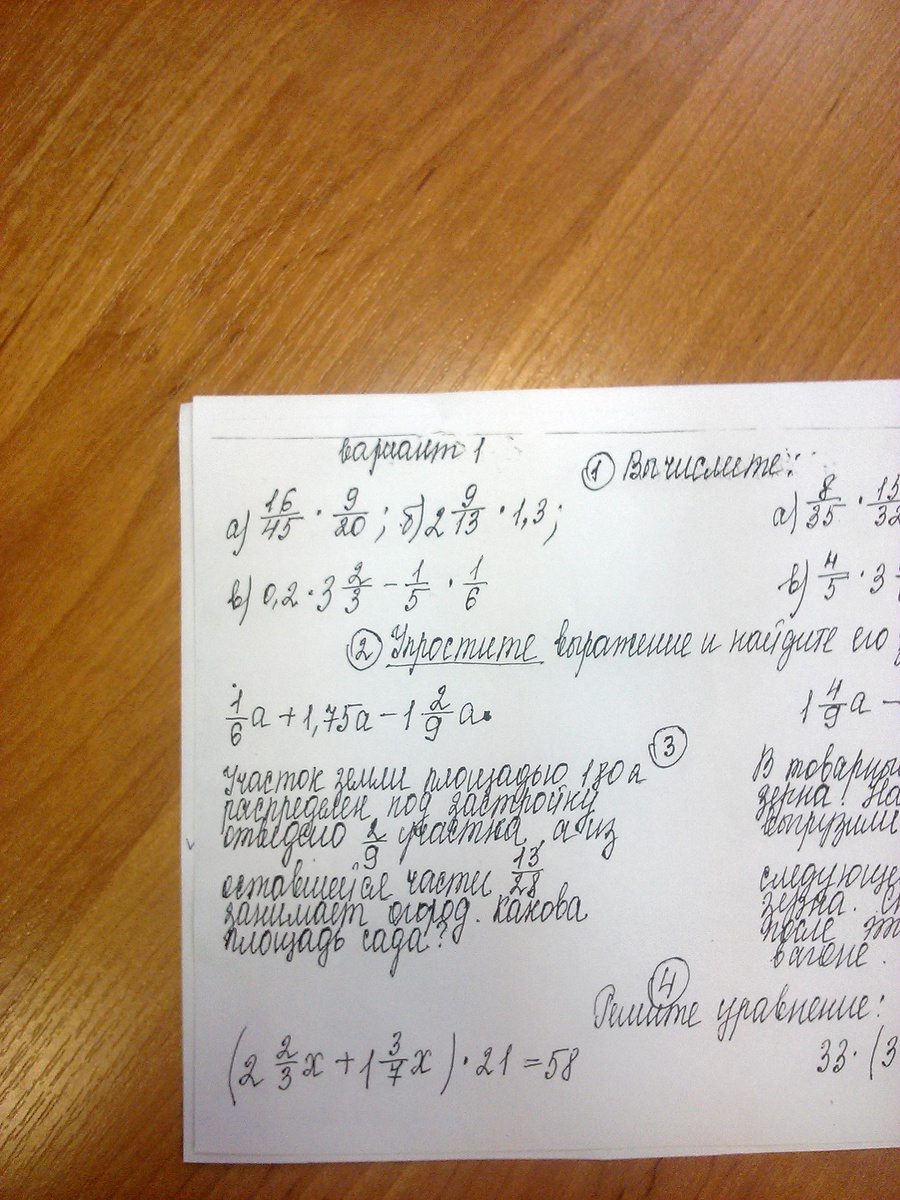 вариант 1
① Вычислите:
а) 16/45 · 9/20; б) 2 9/13 · 1,3;
а) 8/35 · 15/32
в) 0,2 · 3 2/3 - 1/5 · 1/6
в) 4/5 · 3
② Упростите выражение и найдите его
1/6 a + 1,75a - 1 2/9 a.
1 4/9 a -
③
Участок земли площадью 180 а
распределен под застройку
отведено 2/9 участка, а из
оставшейся части 13/28
занимает огород. Какова
площадь сада?
В товарны
зерна. На
выгрузили
следующе
зерна.
после эт
вагоне.
④
Решите уравнение:
(2 2/3 x + 1 3/7 x) · 21 = 58
33 · (3